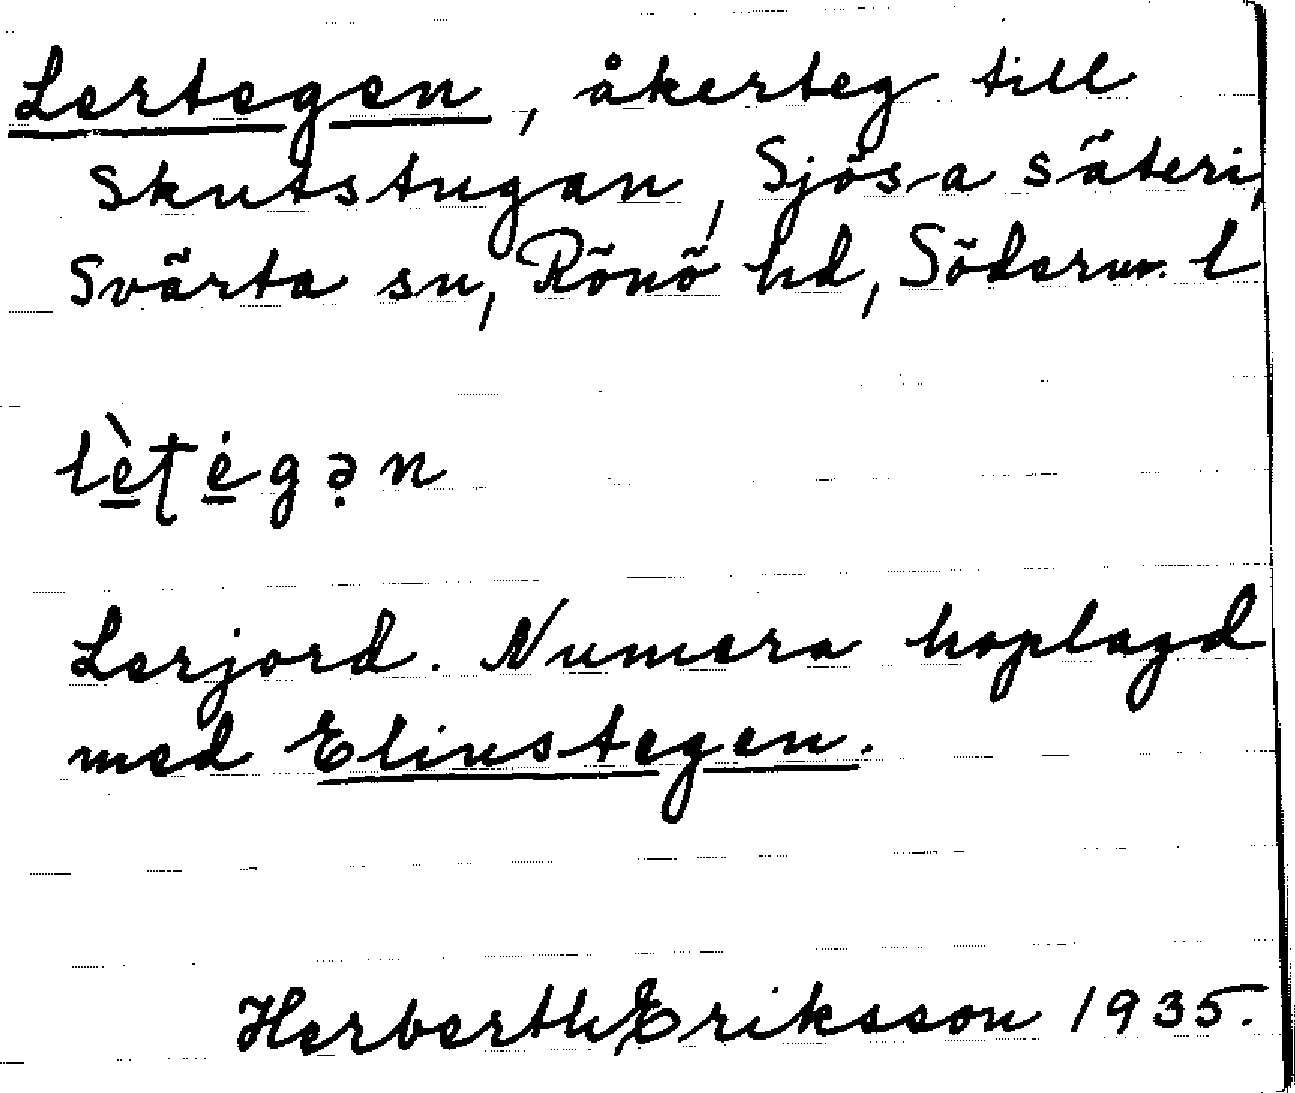 Lertegen, åkerteg till
Skutstugan, Sjösa säteri,
Svärta sn, Rönö hd, Söderm. l
lètégən
Lerjord. Numera hoplagd
med Elinstegen.
Herberth Eriksson 1935.